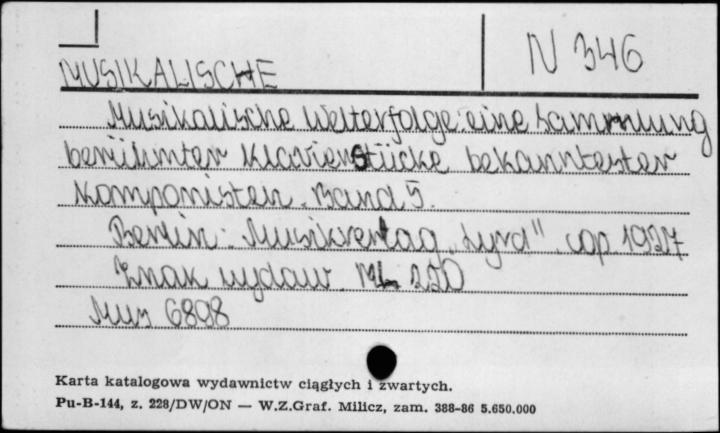 N 346
MUSIKALISCHE
Musikalische Welterfolge: eine Sammlung
berühmter Klavierstücke bekanntester
Komponisten. Band 5.
Berlin: Musikverlag „Lyra". cop. 1927
Znak wydaw. ML 220
Muz 6898
Karta katalogowa wydawnictw ciągłych i zwartych.
Pu-B-144, z. 228/DW/ON — W.Z.Graf. Milicz, zam. 388-86 5.650.000